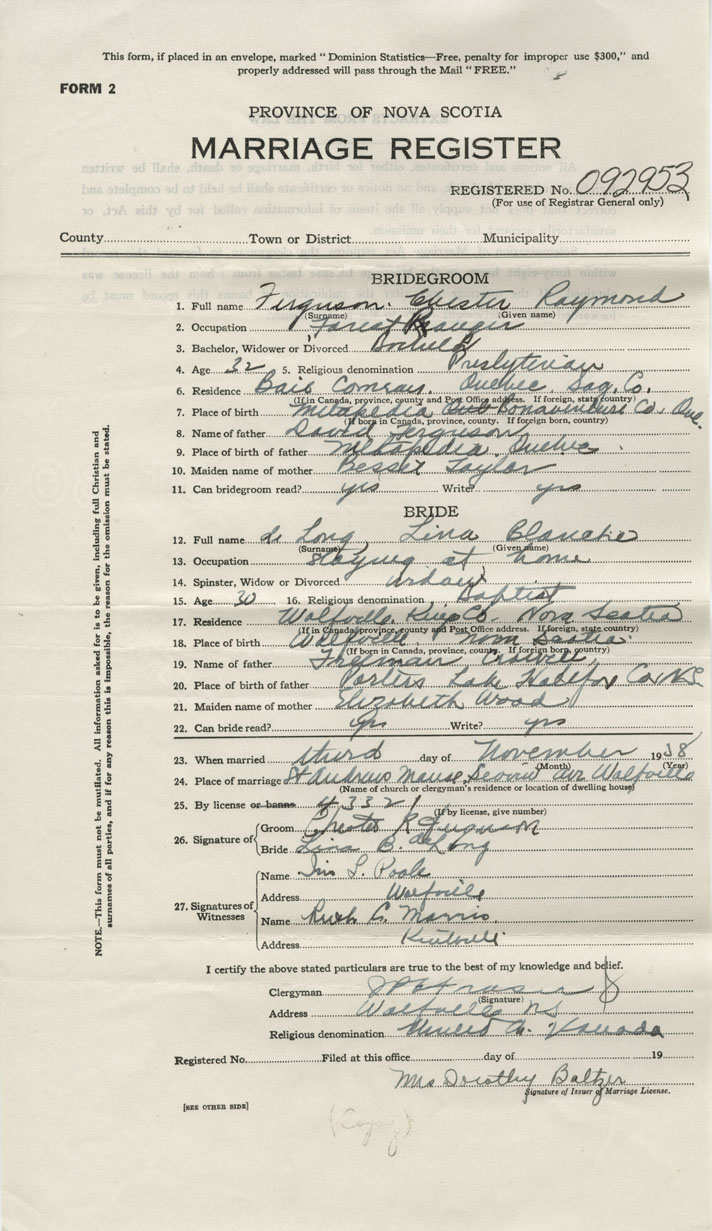 This form, if placed in an envelope, marked "Dominion Statistics—Free, penalty for improper use $300," and
properly addressed will pass through the Mail "FREE."
FORM 2
PROVINCE OF NOVA SCOTIA
MARRIAGE REGISTER
REGISTERED No. 092953
(For use of Registrar General only)
County Town or District Municipality
BRIDEGROOM
1. Full name Ferguson. Chester Raymond
(Surname) (Given name)
2. Occupation Forest Ranger
3. Bachelor, Widower or Divorced Bachelor
4. Age 32 5. Religious denomination Presbyterian
6. Residence Baie Comeau, Quebec Sag. Co.
(If in Canada, province, county and Post Office address. If foreign, state country)
7. Place of birth Metapedia Bonaventure Co. Que.
(If born in Canada, province, county. If foreign born, country)
8. Name of father David Ferguson
9. Place of birth of father Metapedia Quebec
10. Maiden name of mother Taylor
11. Can bridegroom read? yes Write? yes
BRIDE
12. Full name de Long, Lina Blanche
(Surname) (Given name)
13. Occupation Staying at home
14. Spinster, Widow or Divorced Widow
15. Age 30 16. Religious denomination Baptist
17. Residence Wolfville, Kings Co. Nova Scotia
(If in Canada, province, county and Post Office address. If foreign, state country)
18. Place of birth Wolfville Nova Scotia
(If born in Canada, province, county. If foreign born, country)
19. Name of father Freeman
20. Place of birth of father Porters Lake Halifax Co. N.S.
21. Maiden name of mother Elizabeth Wood
22. Can bride read? yes Write? yes
23. When married third day of November 1938
(Month) (Year)
24. Place of marriage St Andrews Manse, Ave Wolfville
(Name of church or clergyman's residence or location of dwelling house)
25. By license or banns 43321
(If by license, give number)
26. Signature of
Groom Chester R Ferguson
Bride Lina B. deLong
27. Signatures of Witnesses
Name Iris L. Poole
Address Wolfville
Name Ruth C. Morris
Address Kentville
I certify the above stated particulars are true to the best of my knowledge and belief.
Clergyman
(Signature)
Address Wolfville NS
Religious denomination United Ch. Canada
Registered No. Filed at this office day of 19
Mrs Dorothy Baltzer
Signature of Issuer of Marriage License.
[SEE OTHER SIDE]
(Copy)
NOTE.—This form must not be mutilated. All information asked for is to be given, including full Christian and
surnames of all parties, and if for any reason this is impossible, the reason for the omission must be stated.